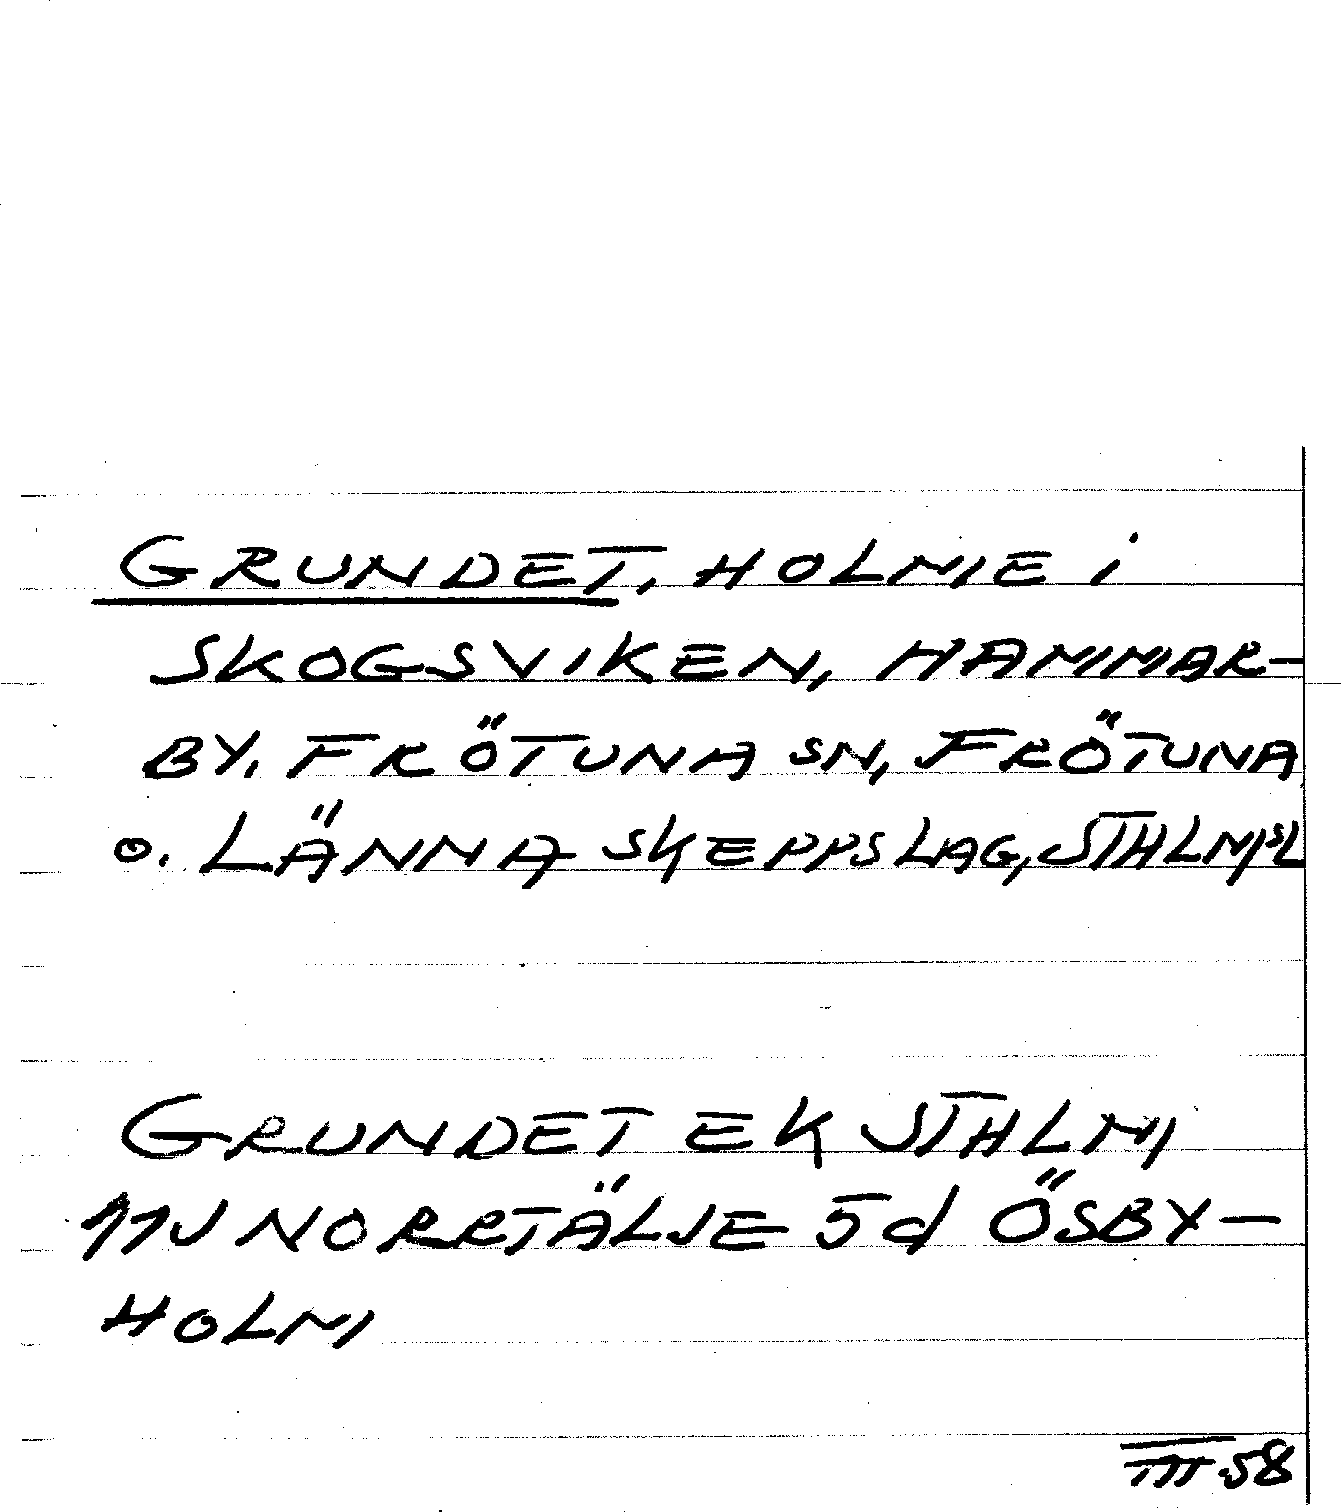 GRUNDET, HOLME i
SKOGSVIKEN, HAMMAR-
BY. FRÖTUNA SN, FRÖTUNA
o. LÄNNA SKEPPSLAG, STHLMSL
GRUNDET EK STHLM
11J NORRTÄLJE 5d ÖSBY-
HOLM
III 58